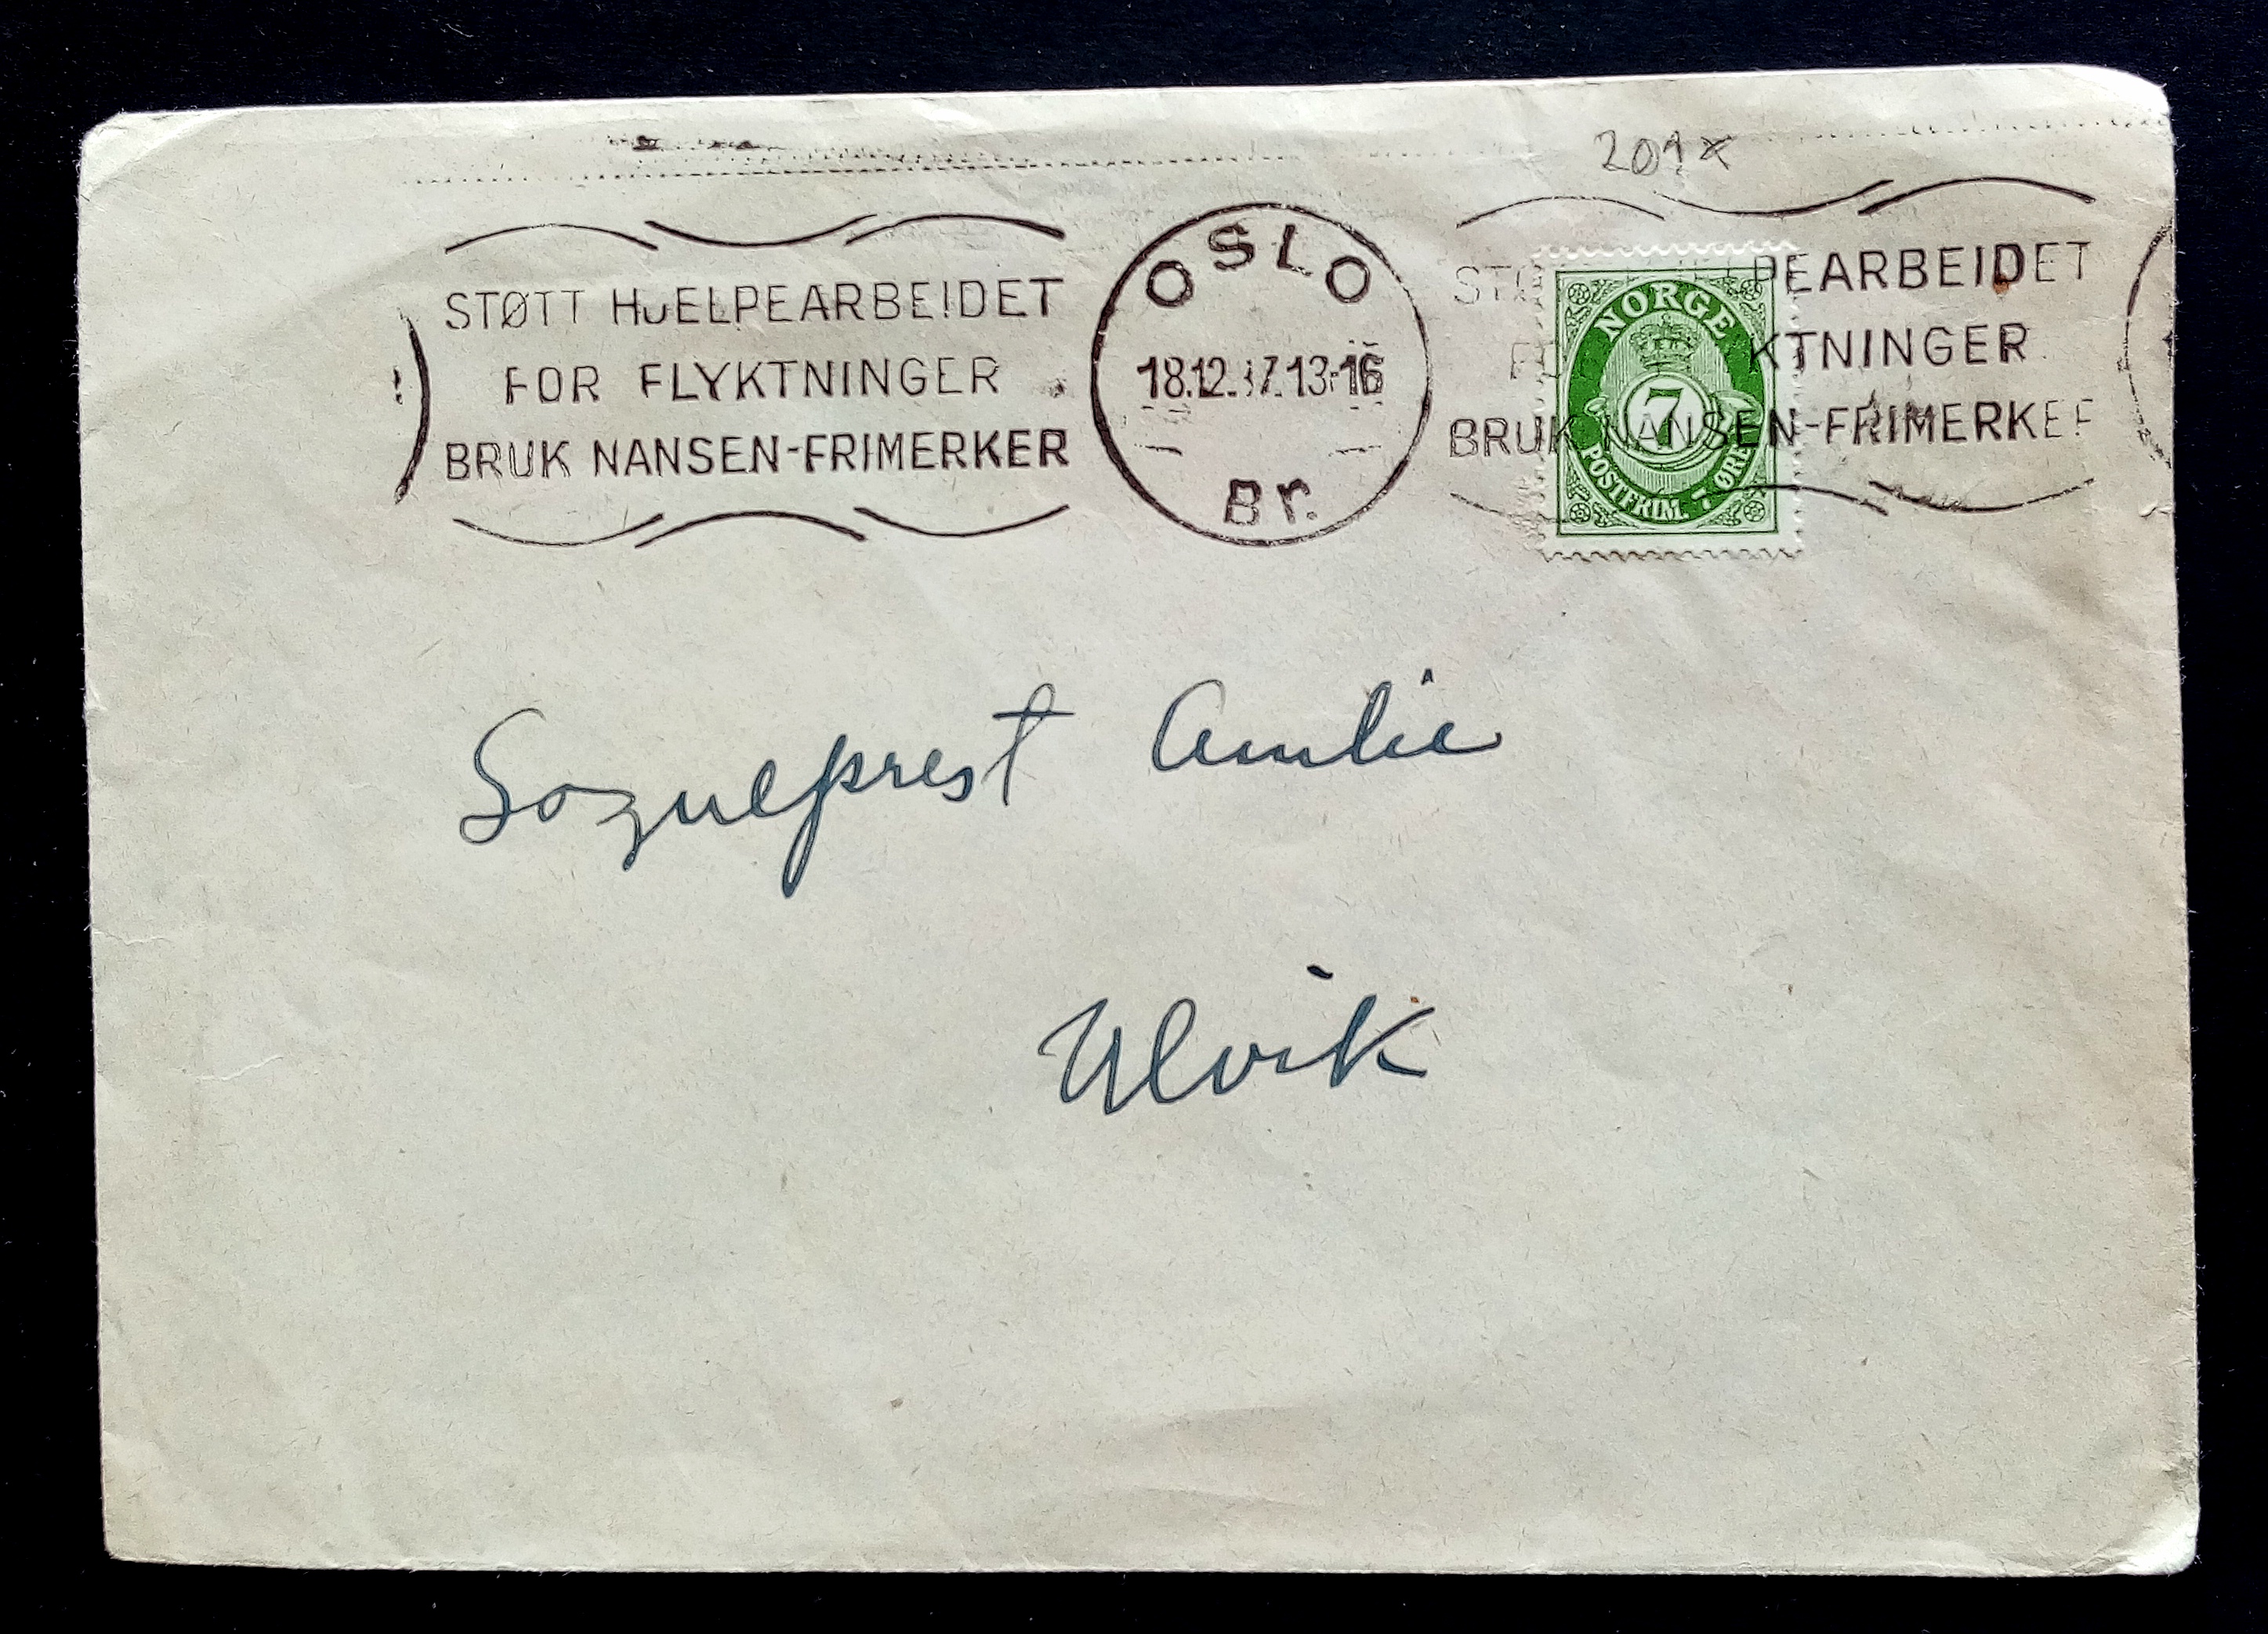 201x
STØTT HJELPEARBEIDET
FOR FLYKTNINGER
BRUK NANSEN-FRIMERKER
OSLO
18.12. 37.13-16
Br.
PEARBEIDET
KTNINGER
BRUK NANSEN-FRIMERKER
NORGE
7
POSTFRIM. 7 ØRE
Sogneprest Amlie
Ulvik